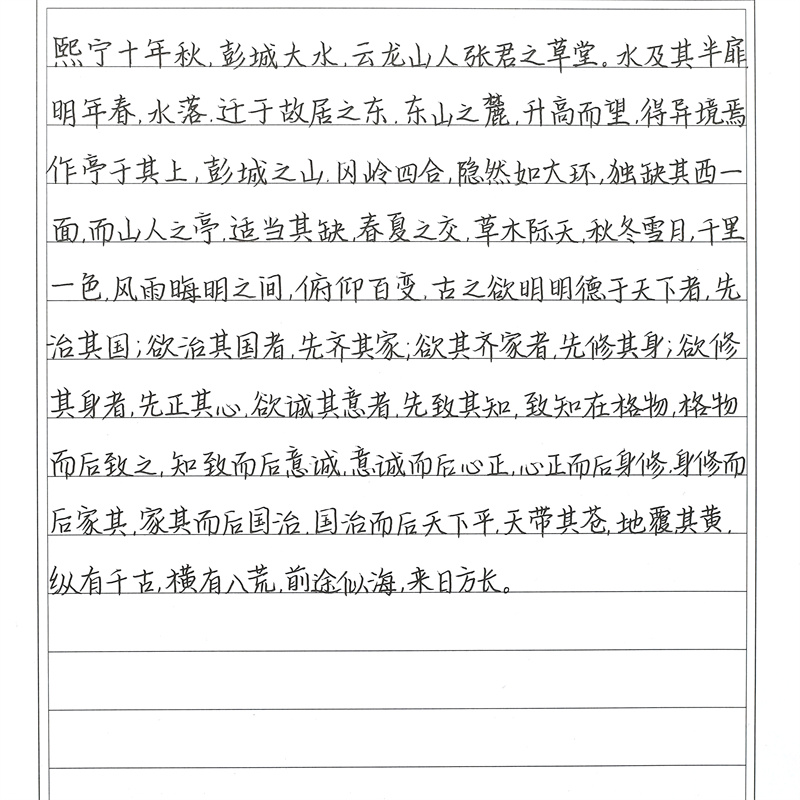 熙宁十年秋,彭城大水,云龙山人张君之草堂。水及其半扉
明年春,水落.迁于故居之东.东山之麓,升高而望,得异境焉
作亭于其上,彭城之山.冈岭四合,隐然如大环,独缺其西一
面,而山人之亭,适当其缺,春夏之交,草木际天,秋冬雪月,千里
一色,风雨晦明之间,俯仰百变.古之欲明明德于天下者,先
治其国;欲治其国者,先齐其家;欲其齐家者,先修其身;欲修
其身者,先正其心,欲诚其意者,先致其知,致知在格物,格物
而后致之,知致而后意诚,意诚而后心正,心正而后身修.身修而
后家其,家其而后国治.国治而后天下平,天带其苍,地覆其黄,
纵有千古,横有八荒,前途似海,来日方长。